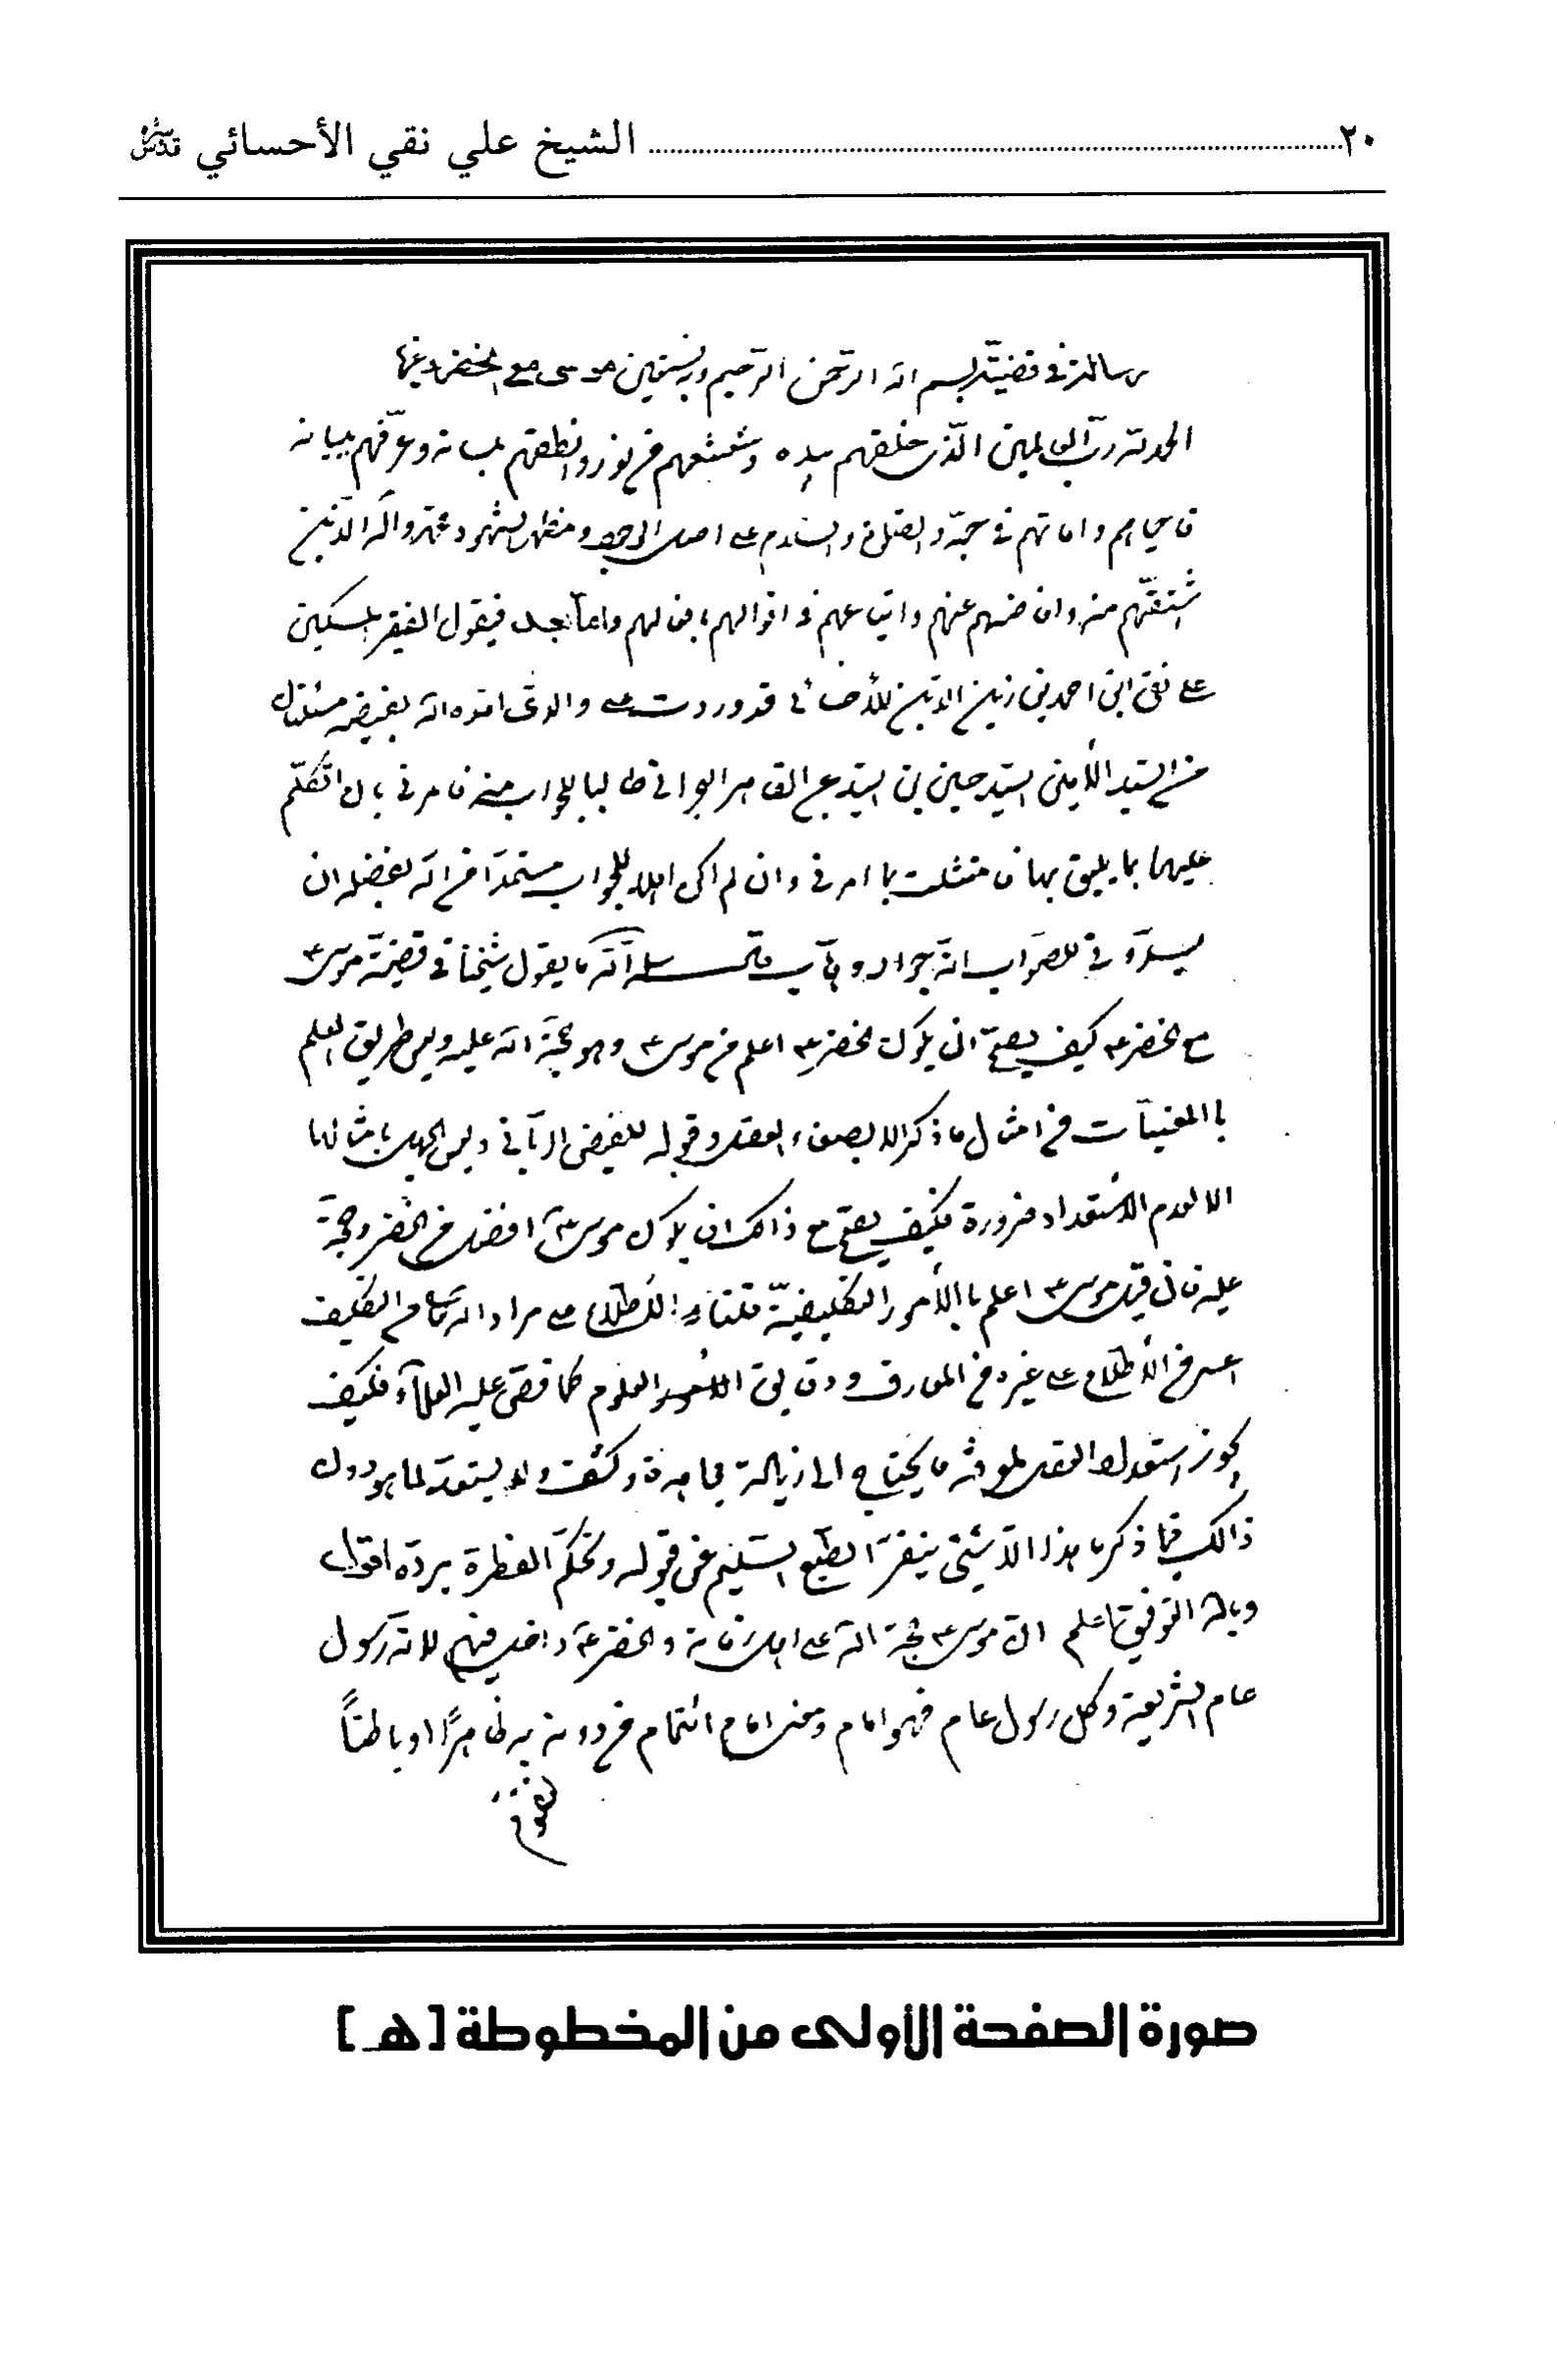 ٢٠ ........ الشيخ علي نقي الأحسائي قدس سره
رسالة في قضية بسم الله الرحمن الرحيم وبه نستعين موسى مع الخضر وغيرها
الحمد لله رب العالمين الذي خلقهم بيده وشعشعهم من نوره وانطقهم بلسانه وعرفهم ببيانه
فاحياهم واماتهم في حبه والصلوة والسلام على اصل الوجود ومظهر الشهود محمد واله الذين
اشتقهم منه وان عنهم واتباعهم في اقوالهم وافعالهم واما بعد فيقول الفقير المسكين
علي نقي ابن احمد بن زين الدين الأحسائي قد وردت على والدي امده الله بفيضه مسئلتان
من السيد الأمين السيد حسين بن السيد عبد القاهر البحراني طالبا للجواب منه فامرني بان اتكلم
عليهما بما يليق بهما فامتثلت بما امرني وان لم اكن اهلا للجواب مستمدا من الله بفضله ان
يسددني للصواب انه جواد وهاب قال سلمه الله ما يقول شيخنا في قضية موسى ع
مع الخضر ع كيف يصح ان يكون الخضر ع اعلم من موسى ع وهو حجة الله عليه وليس طريق العلم
با المغيبات من امثال ما ذكر الا بصفاء العقل وقبوله للفيض الرباني وليس الجهل بامثالها
الا لعدم الاستعداد ضرورة فكيف يصح مع ذالك ان يكون موسى ع افضل من الخضر وحجة
عليه فان قيل موسى ع اعلم با الأمور التكليفية قلنا الاطلاع على مراد الله تعالى من التكليف
اعسر من الأطلاع على غيره من المعارف ودقايق العلوم كما قضى عليه العلماء فكيف
يجوز استعداد العقل لمعرفة ما يحتاج الى زيادة مجاهدة وكشف ولا يستعد لما هو دون
ذالك فما ذكر هذا الا شيئ ينفر الطبع السليم عن قبوله وتحكم الفطرة برده اقول
وبالله التوفيق اعلم ان موسى ع حجة الله على اهل زمانه والخضر ع داخل فيهم لانه رسول
عام الشريعة وكل رسول عام فهو امام ومعنى امام ائتمام من دونه به ظاهرًا او باطنًا
صورة الصفحة الأولى من المخطوطة [هـ]